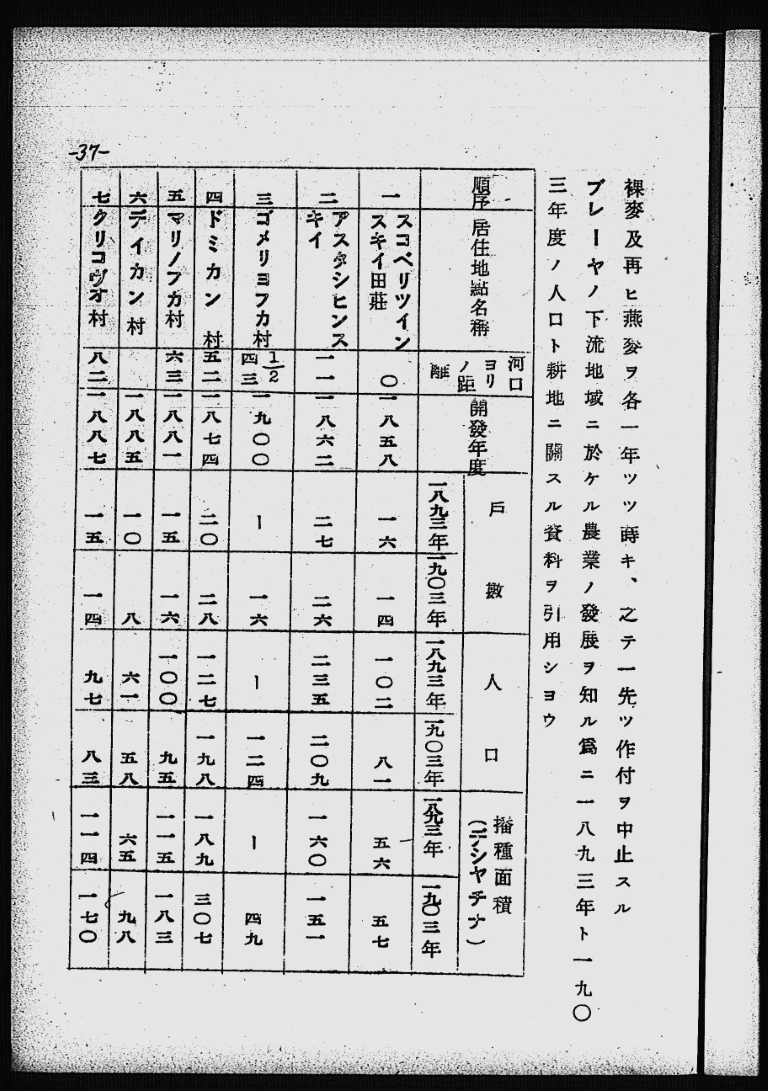 裸麥及再ヒ燕麥ヲ各一年ツツ蒔キ、之テ一先ツ作付ヲ中止スル
ブレーヤノ下流地域ニ於ケル農業ノ發展ヲ知ル爲ニ一八九三年ト一九〇
三年度ノ人口ト耕地ニ關スル資料ヲ引用シヨウ
順序 居住地點名稱 河口ヨリノ距離 開發年度 戶數 人口 播種面積(デシヤチナ)
一八九三年 一九〇三年 一八九三年 一九〇三年 一八九三年 一九〇三年
一 スコベリツインスキイ田莊 〇 一八五八 一六 一四 一〇二 八一 五六 五七
二 アスタシヒンスキイ 一一 一八六二 二七 二六 二三五 二〇九 一六〇 一五一
三 ゴメリヨフカ村 四三1/2 一九〇〇 ー 一六 ー 一二四 ー 四九
四 ドミカン村 五二 一八七四 二〇 二八 一二七 一九八 一八九 三〇七
五 マリノフカ村 六三 一八八一 一五 一六 一〇〇 九五 一一五 一八三
六 デイカン村 一八八五 一〇 八 六一 五八 六五 九八
七 クリコヴオ村 八二 一八八七 一五 一四 九七 八三 一一四 一七〇
-37-